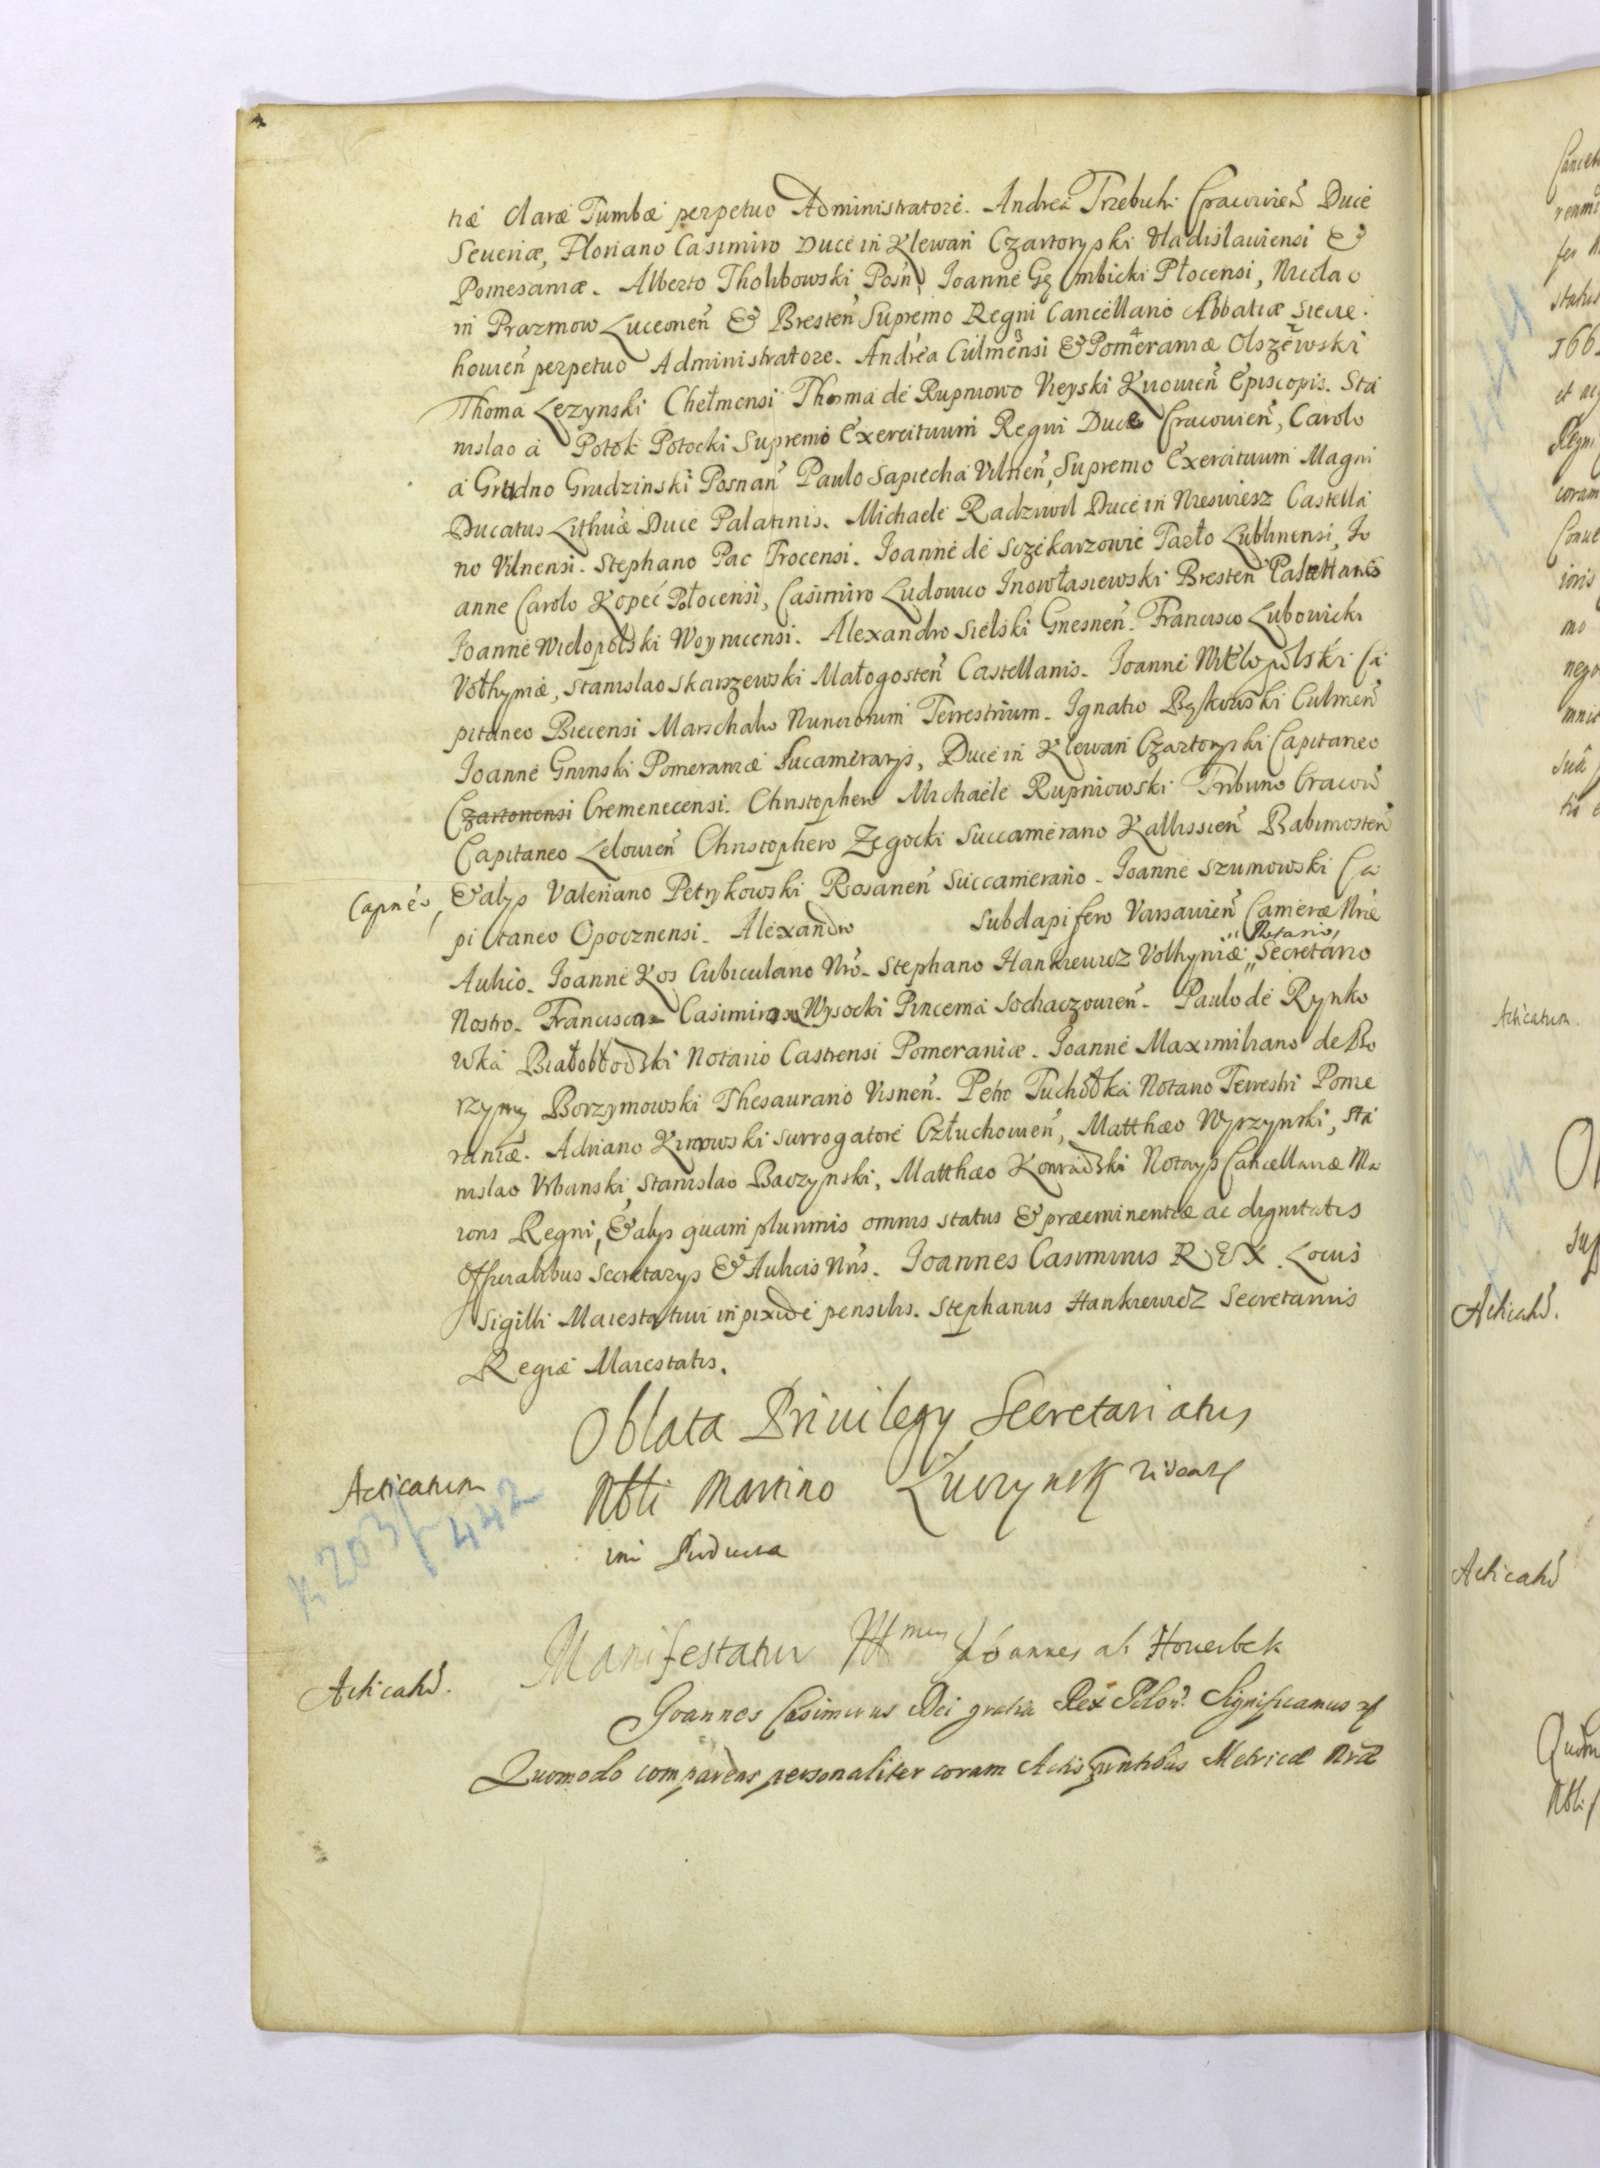 tiæ Claræ Tumbæ perpetuo Administratore. Andrea Trzebicki Cracovień Duce
Severiæ, Floriano Casimiro Duce in Klewań Czartoryski Vladislaviensi &
Pomesaniæ. Alberto Tholibowski Posń, Joanne Gębicki Płocensi, Nicolao
in Prazmow Luceoneń & Bresteń Supremo Regni Cancellario Abbatiæ Siecie
houień perpetuo Administratore. Andrea Culmensi & Pomeraniæ Olszewski
Thoma Lezynski Chełmensi Thoma de Rupniowo Vieyski Kiiouień Episcopis. Sta
nislao a Potok Potocki Supremo Exercituum Regni Duce Cracouień, Carolo
a Grudno Grudzinski Posnań Paulo Sapiecha Vilneń, Supremo Exercituum Magni
Ducatus Lithuæ Duce Palatinis. Michaele Radziwil Duce in Nieswiesz Castella
no Vilnensi. Stephano Pac Trocensi. Joanne de Sczekarzowie Tarło Lublinensi, Jo
anne Carolo Kopeć Połocensi, Casimiro Ludouico Jnowłasiewski Bresteń Palattanis
Joanne Wielopolski Woynicensi. Alexandro Sielski Gnesneń. Francisco Lubowicki
Vołhyniæ, Stanislao Skarszewski Małogosteń Castellanis. Joanne Wielopolski Ca
pitaneo Biecensi Marschalco Nunciorum Terrestrium. Ignatio Bąkowski Culmeń
Joanne Gninski Pomeraniæ Sucamerarys, Duce in Klewań Czartoryski Capitaneo
Czartonensi Cremenecensi. Christophero Michaele Rupniowski Tribuno Cracoń
Capitaneo Lelouień Christophero Zegocki Succamerario Kallissień Babimosteń
Capneo, & alys Valeriano Petrykowski Rosaneń Succamerario. Joanne Szumowski Ca
pi taneo Opocznensi. Alexandro Subdapifero Varsavień Cameræ Nræ
Notario
Aulico. Joanne Kos Cubiculario Nro. Stephano Hankiewicz Volhyniæ „ Secretario
Nostro. Francisco Casimiro Wysocki Pincerna Sochaczouień. Paulo de Rynko
wka Białobłodzki Notario Castrensi Pomeraniæ. Joanne Maximiliano de Bo
rzymy Borzymowski Thesaurario Visneń. Petro Tuchołka Notario Terrestri Pome
raniæ. Adriano Kirrowski Surrogatore Człuchouień, Matthæo Wyrzynski, Sta
nislao Vrbanski, Stanislao Baczynski, Matthæo Konradzki Notarys Cancellariæ Ma
ioris Regni, & alys quam plurimis omnis status & præeminentiæ ac dignitatis
Officialibus Secretarys & Aulicis Nris. Joannes Casimirus REX. Locus
Sigilli Maiestatiui in pixide pensilis. Stephanus Hankiewicz Secretarius
Regiæ Maiestatis.
Oblata Priuilegy Secretariatus
Acticatum
Nbli Martino
k 203 f 442
Manifestatur Joannes ab Houerbek
Acticatū.
Joannes Casimirus Dei gratia Rex Poloń. Significamus
Quomodo comparens personaliter coram Actis pntibus Metricæ Nræ
Acticatum.
Acticatū.
Acticatū